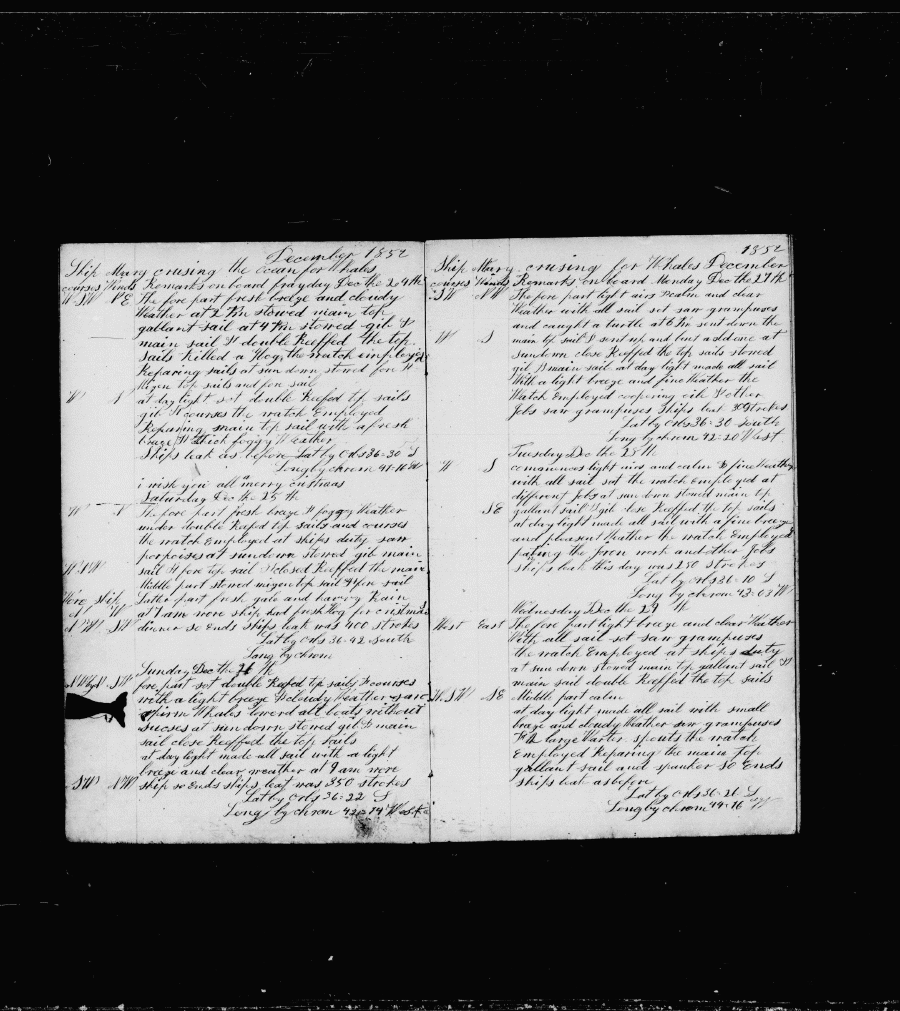 December 1852
Ship Mary crusing the ocean for Whales
courses Winds Remarks on board frayday Dec the 24th
W.SW N E The fore part fresh breze and cloudy
Weather at 2 Pm stowed main top
gallant sail at 4 Pm stowed gib &
main sail & double Reeffed the top
sails Killed a Hog, the watch imployed
Reparing sails at sun down stowed fore &
Mizen top sails and fore sail
W N at day light set double Reefed top sails
gib & courses the watch Employed
Reparing main top sail with a fresh
breze & thick foggy Weather
Ships leak as before Lat by Obs 36=30 S
Long by chrom 41=16 W
i wish you all a merry cristmas
Saturday Dec the 25 th
W N The fore part fresh breze & foggy Weather
under double Reefed top sails and courses
the watch Employed at ships duty saw
porpoises at sundown stowed gib main
W.SW sail & fore top sail & closed Reeffed the main
Middle part stowed mizen top sail & fore sail
Wore ship Latter part fresh gale and havvy Rain
W at 7 am wore ship had fresh Hog for cristmas
N W SW dinner so Ends ships leak was 400 strokes
Lat by Obs 36=42 South
Long by chrom
Sunday Dec the 26 th
NWbyN SW fore part set double Reefed top sails & courses
with a light breze & cloudy Weather saw
spirm Whales lowerd all boats without
sucses at sun down stowed gib & main
sail close Reeffed the top sails
at day light made all sail with a light
breze and clear weather at 9 am wore
SW NW ship so Ends ships leak was 350 strokes
Lat by Obs 36=22 S
Long by chrom 42=14 West
1852
Ship Mary crusing for Whales December
courses Winds Remarks on board Monday Dec the 27th
SW NW The fore part light airs & calm and clear
Weather with all sail set saw grampuses
and caught a turtle at 6 Pm sent down the
W S main top sail & sent up and bent a old one at
sundown close Reeffed the top sails stowed
gib & main sail at day light made all sail
With a light breeze and fine Weather the
Watch Employed coopering oil & other
Jobs saw grampuses Ships leak 300 strokes
Lat by Obs 36=30 South
Long by chrom 42=20 West
Tuesday Dec the 28th
W S commences light airs and calm & fine Weather
with all sail set the watch employed at
different Jobs at sun down stowed main top
SE gallant sail & gib close Reeffed the top sails
at day light made all sail with a fine breeze
and pleasent Weather the watch Employed
paring the Iron work and other Jobs
ships leak this day was 250 strokes
Lat by Obs 36=10 S
Long by chrom 43=03 W
Wednesday Dec the 29 th
West East The fore part light breeze and clear Weather
With all sail set saw grampuses
the watch Employed at ships duty
at sun down stowed main top gallant sail &
main sail double Reeffed the top sails
W.SW SE Middle part calm
at day light made all sail with small
breze and cloudy Weather saw grampuses
& large Water spouts the watch
Employed Reparing the main top
gallant sail and spanker So Ends
ships leak as before
Lat by Obs 36=26 S
Long by chrom 44=16 W